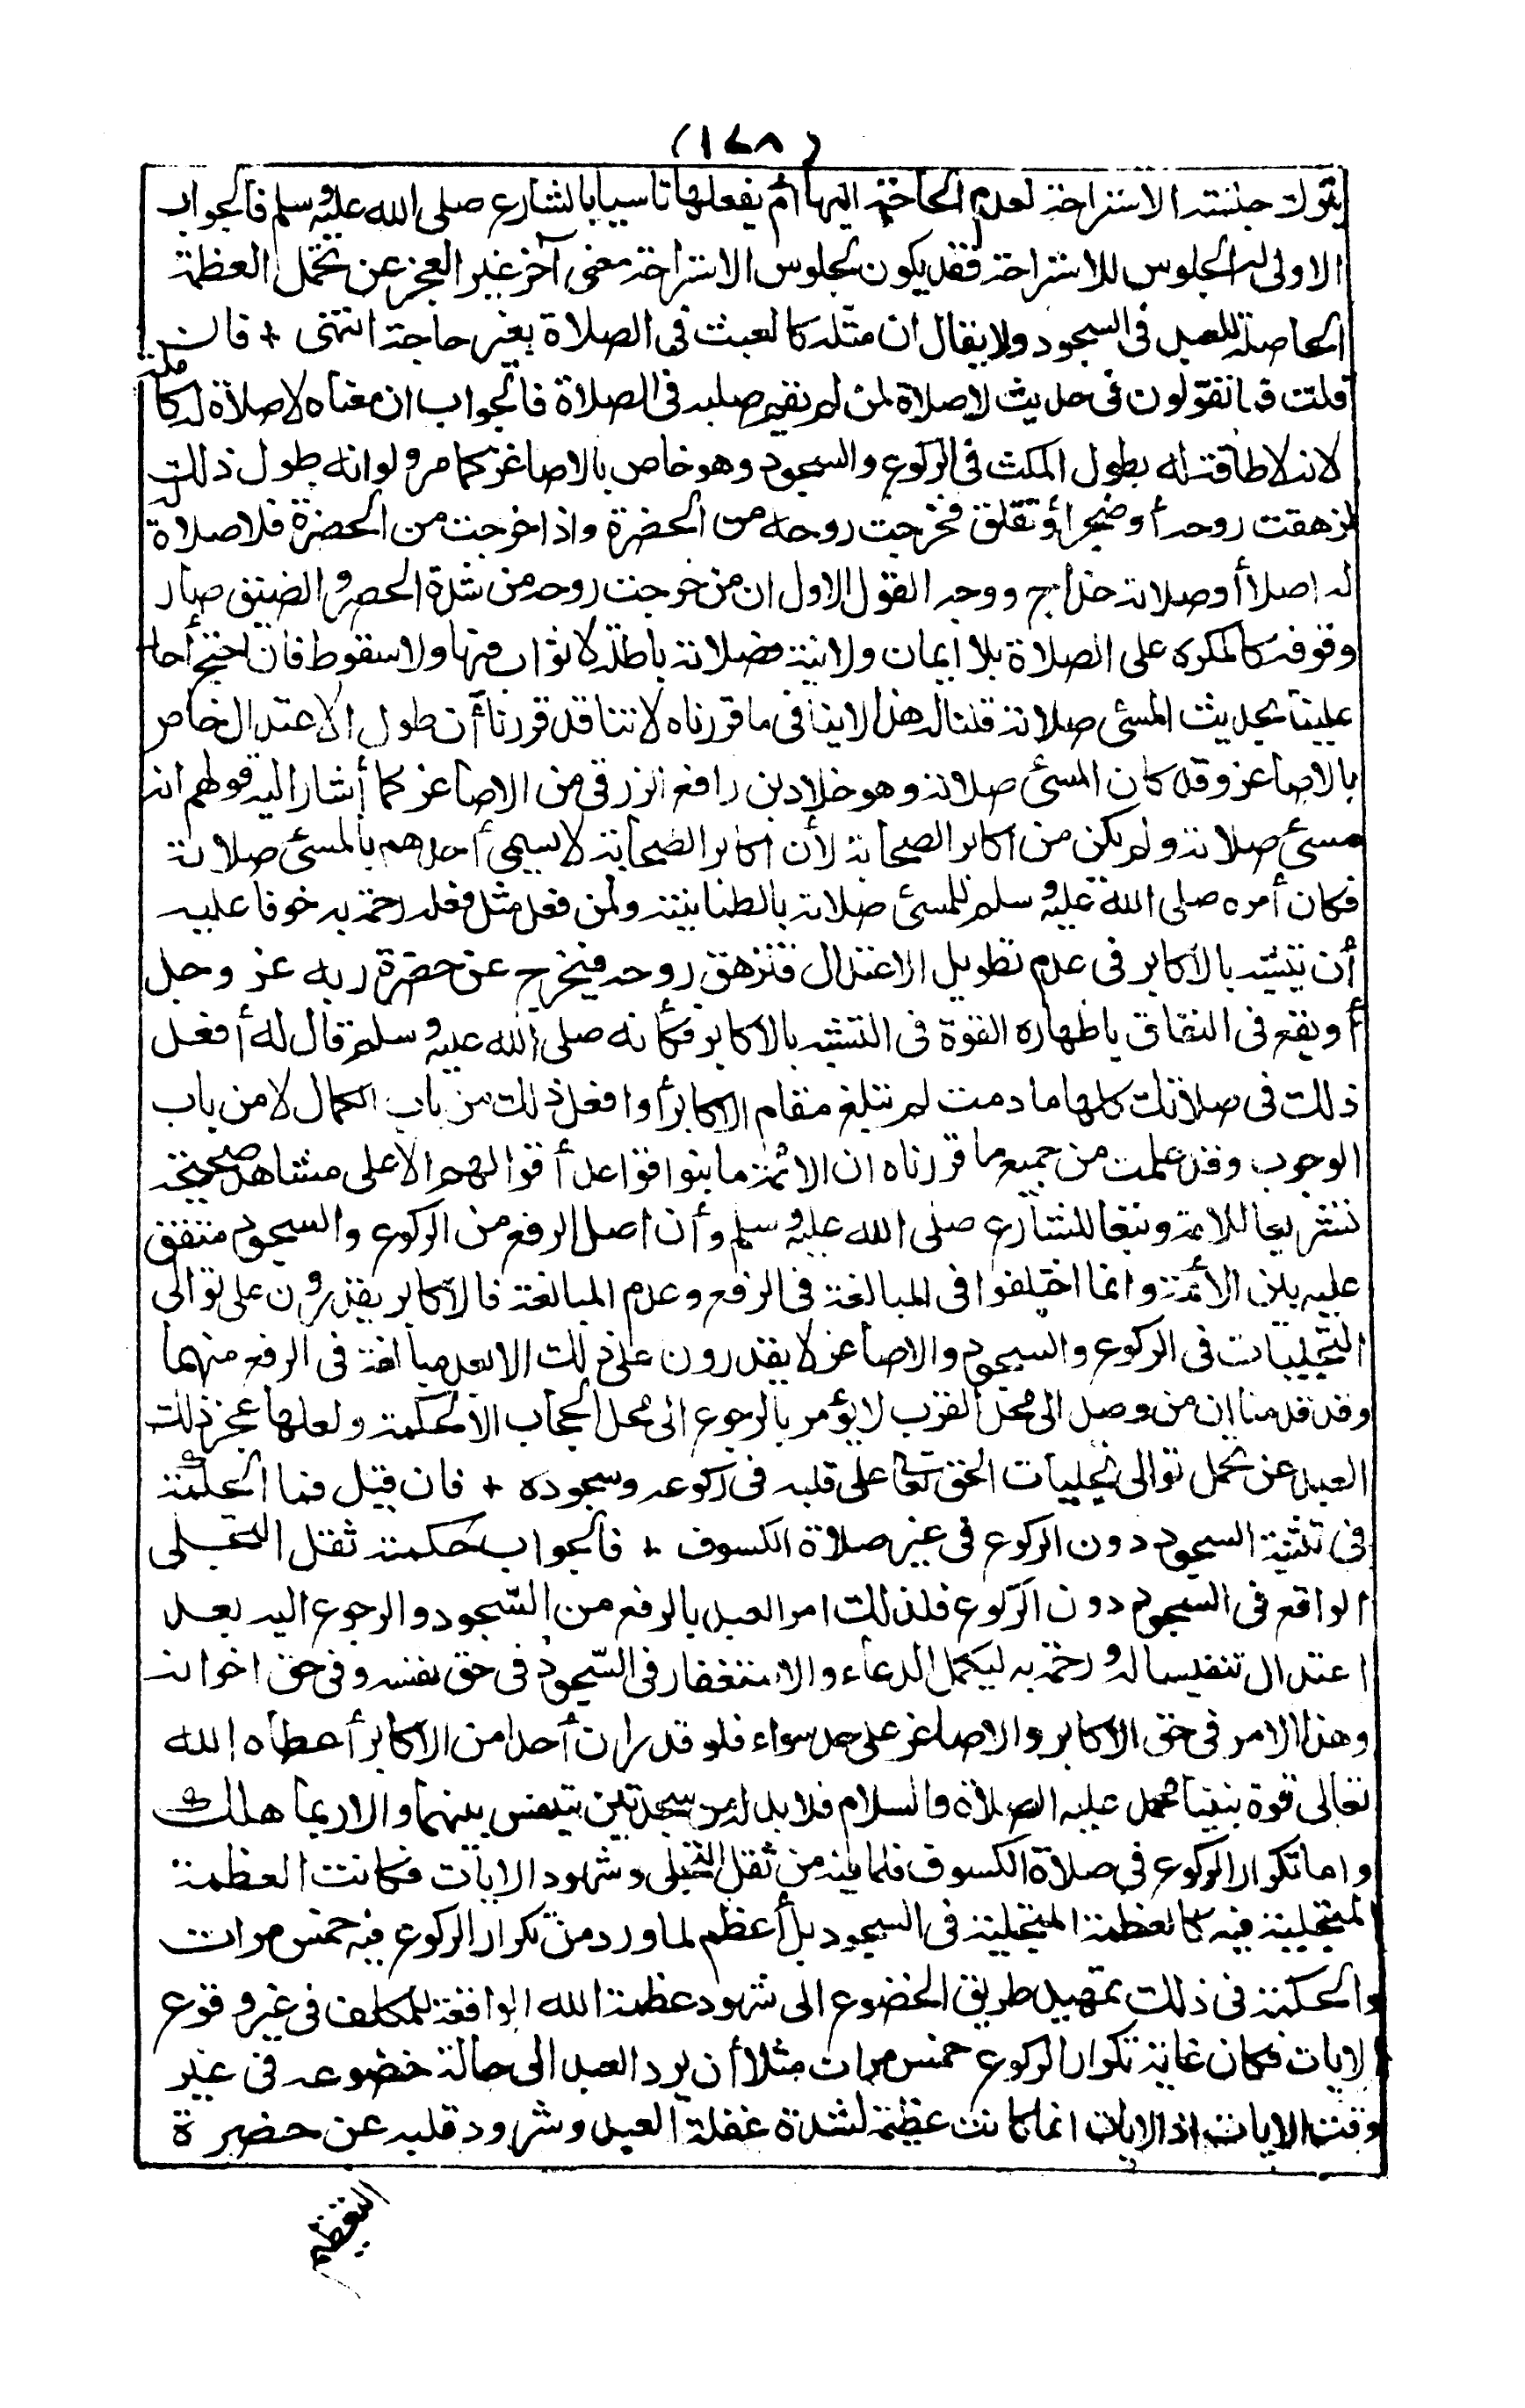 (١٤٨)
يترك جلسة الاستراحة لعدم الحاجة اليها أم يفعلها تأسيا بالشارع صلى الله عليه وسلم فالجواب
الاولى له الجلوس للاستراحة فقد يكون لجلوس الاستراحة معنى آخر غير العجز عن تحمل العظمة
الحاصلة للعبد فى السجود ولا يقال ان مثله كالعبث فى الصلاة بغير حاجة انتهى + فان
قلت فما تقولون فى حديث لا صلاة لمن لم يقم صلبه فى الصلاة فالجواب ان معناه لا صلاة له كاملة
لانه لا طاقة له بطول المكث فى الركوع والسجود وهو خاص بالاصاغر كما مر ولو انه طول ذلك
لزهقت روحه أو ضجر أو تقلق فخرجت روحه من الحضرة واذا خرجت من الحضرة فلا صلاة
له اصلا أو صلاته خداج ووجه القول الاول ان من خرجت روحه من شدة الحصر والضيق صار
وقوفه كالمكره على الصلاة بلا ايمان ولا نية فصلاته باطلة لا ثواب فيها ولا سقوط فان احتج أحد
علينا بحديث المسئ صلاته قلنا له هذا لا ينافى ما قررناه لاننا قد قررنا أن طول الاعتدال خاص
بالاصاغر وقد كان المسئ صلاته وهو خلاد بن رافع الزرقى من الاصاغر كما أشار اليه قولهم انه
مسئ صلاته ولم يكن من اكابر الصحابة لأن اكابر الصحابة لا يسمى أحدهم بالمسئ صلاته
فكان أمره صلى الله عليه وسلم للمسئ صلاته بالطمأنينة ولمن فعل مثل فعله رحمة به خوفا عليه
أن يتشبه بالاكابر فى عدم تطويل الاعتدال فتزهق روحه فيخرج عن حضرة ربه عز وجل
أو يقع فى النفاق باظهاره القوة فى التشبه بالاكابر فكأنه صلى الله عليه وسلم قال له أفعل
ذلك فى صلاتك كلها ما دمت لم تبلغ مقام الاكابر أو افعل ذلك من باب الكمال لا من باب
الوجوب وقد علمت من جميع ما قررناه ان الائمة ما بنوا قواعد أقوالهم الا على مشاهد صحيحة
تشريعا للامة وتبعا للشارع صلى الله عليه وسلم وأن اصل الرفع من الركوع والسجود متفق
عليه بين الأئمة وانما اختلفوا فى المبالغة فى الرفع وعدم المبالغة فالاكابر يقدرون على توالى
التجليات فى الركوع والسجود والاصاغر لا يقدرون على ذلك الا بعد مبالغة فى الرفع منهما
وقد قدمنا ان من وصل الى محل القرب لا يؤمر بالرجوع الى محل الحجاب الا لحكمة ولعلها عجز ذلك
العبد عن تحمل توالى تجليات الحق تعالى على قلبه فى ركوعه وسجوده + فان قيل فما الحكمة
فى تثنية السجود دون الركوع فى غير صلاة الكسوف + فالجواب حكمته ثقل التجلى
الواقع فى السجود دون الركوع فلذلك امر العبد بالرفع من السجود والرجوع اليه بعد
اعتدال تنفيسا له ورحمة به ليكمل الدعاء والاستغفار فى السجود فى حق نفسه وفى حق اخوانه
وهذا الامر فى حق الاكابر والاصاغر على حد سواء فلو قدر ان أحدا من الاكابر أعطاه الله
تعالى قوة نبينا محمد عليه الصلاة والسلام فلا بد له من سجدتين يتنفس بينهما والا ربما هلك
واما تكرار الركوع فى صلاة الكسوف فلما فيه من ثقل التجلى وشهود الايات فكانت العظمة
المتجلية فيه كالعظمة المتجلية فى السجود بل أعظم لما ورد من تكرار الركوع فيه خمس مرات
والحكمة فى ذلك تمهيد طريق الخضوع الى شهود عظمة الله الواقعة للمكلف فى غير وقوع
الايات فكان غاية تكرار الركوع خمس مرات مثلا أن يرد العبد الى حالة خضوعه فى غير
وقت الايات اذ الايات انما كانت عظيمة لشدة غفلة العبد وشرود قلبه عن حضرة
التعظيم